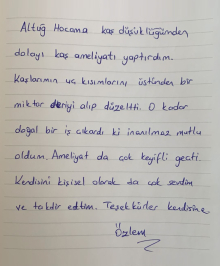 Altuğ Hocama kaş düşüklüğümden
dolayı kaş ameliyatı yaptırdım.
Kaşlarımın uç kısımlarını, üstünden bir
miktar deriyi alıp düzeltti. O kadar
doğal bir iş çıkardı ki inanılmaz mutlu
oldum. Ameliyat da çok keyifli geçti.
Kendisini kişisel olarak da çok sevdim
ve takdir ettim. Teşekkürler kendisine
Özlem